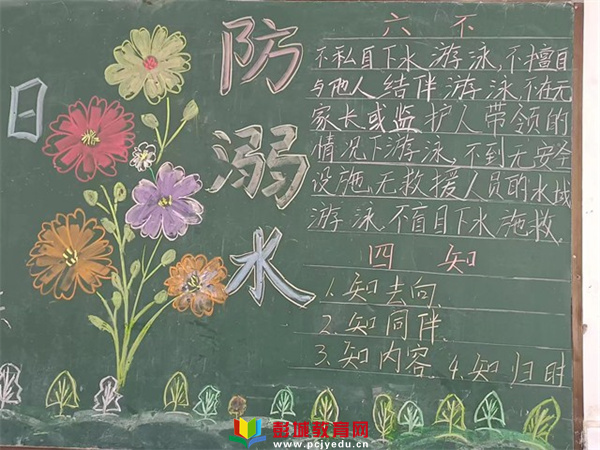 日
防溺水
六不
不私自下水游泳,不擅自
与他人结伴游泳,不在无
家长或监护人带领的
情况下游泳,不到无安全
设施、无救援人员的水域
游泳,不盲目下水施救。
四知
1.知去向
2.知同伴
3.知内容 4.知归时
彭城教育网
www.pcjyedu.cn